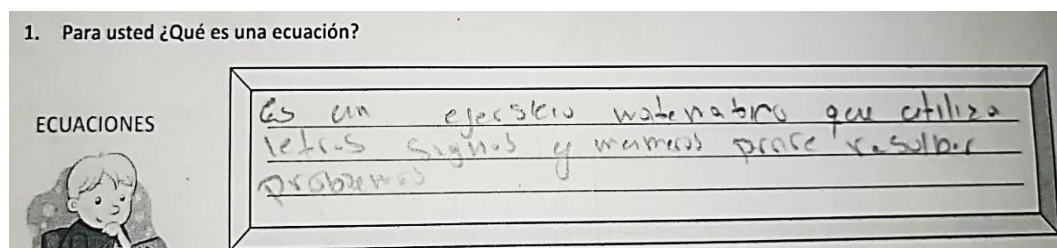 1. Para usted ¿Qué es una ecuación?
ECUACIONES
Es un ejerskio matematico que utiliza
letras signos y numeros para resolber
problemas